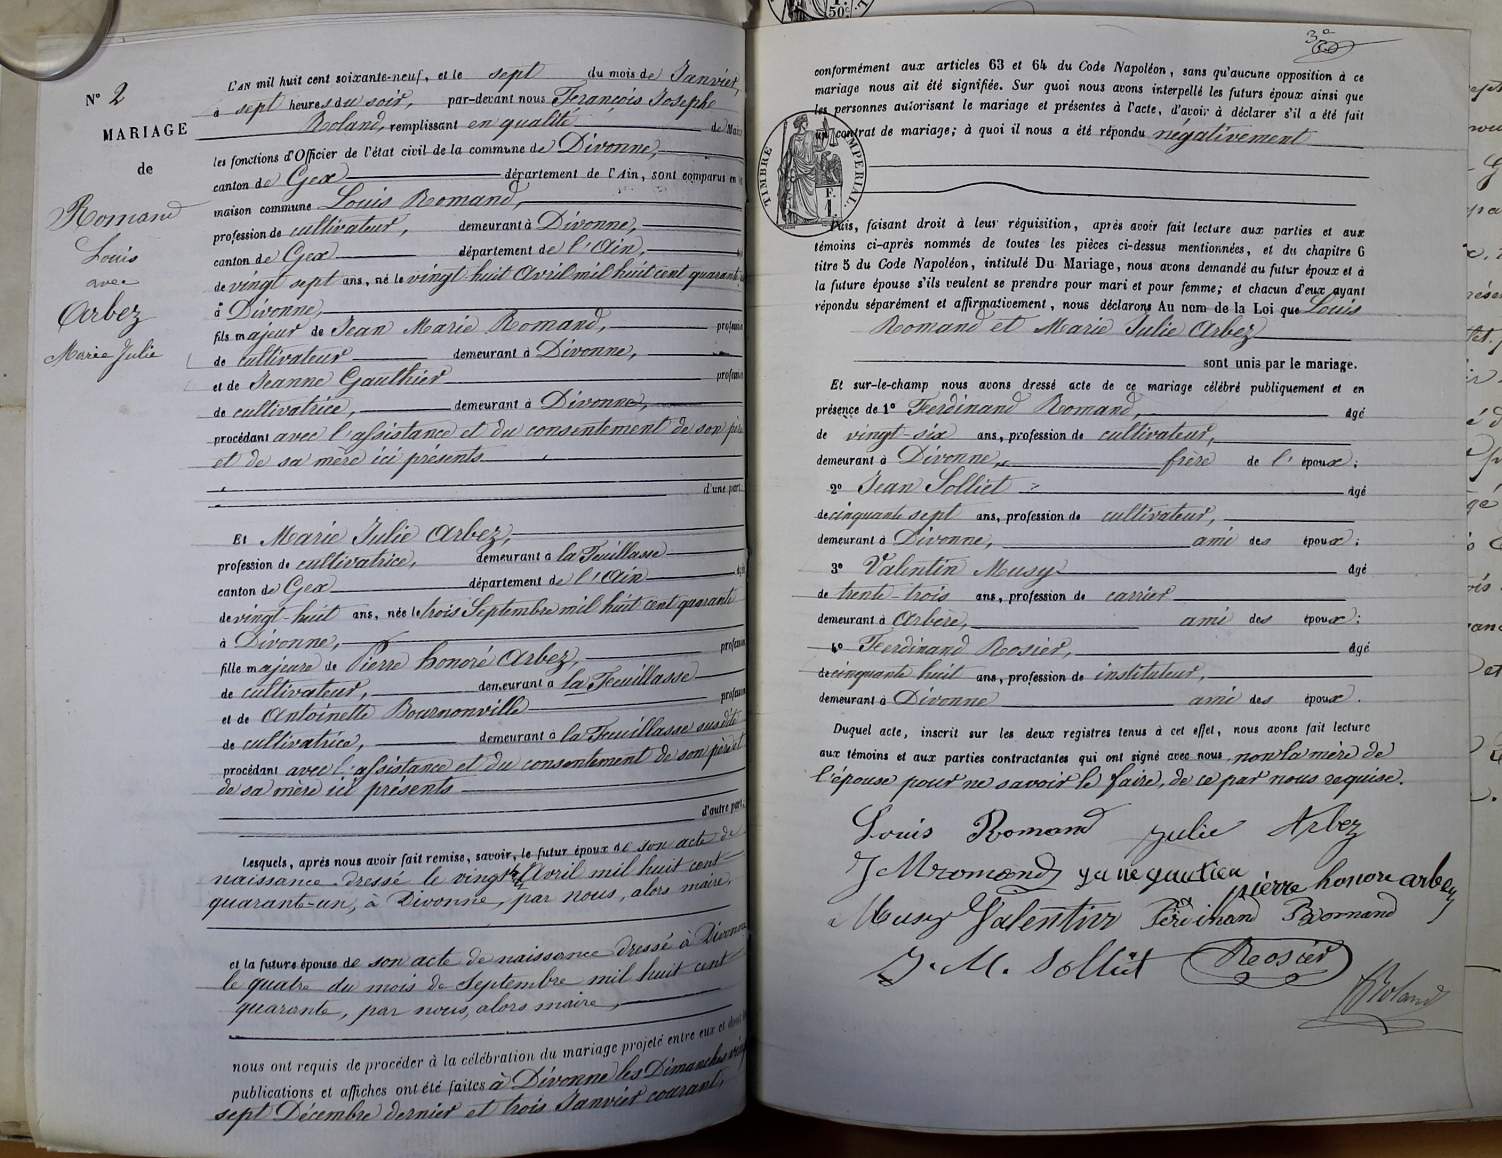 N° 2
MARIAGE
de
Romand
Louis
avec
Arbez
Marie Julie
L'AN mil huit cent soixante-neuf, et le sept du mois de Janvier,
à sept heures du soir, par-devant nous François Josephe
Roland, remplissant en qualité de Maire
les fonctions d'Officier de l'état civil de la commune de Divonne,
canton de Gex département de l'Ain, sont comparus en
maison commune Louis Romand,
profession de cultivateur, demeurant à Divonne,
canton de Gex département de l'Ain,
de vingt sept ans, né le vingt huit Avril mil huit cent quarante
à Divonne,
fils majeur de Jean Marie Romand, profession
de cultivateur demeurant à Divonne,
et de Jeanne Gauthier profession
de cultivatrice, demeurant à Divonne,
procédant avec l'assistance et du consentement de son père
et de sa mère ici presents
d'une part.
Et Marie Julie Arbez,
profession de cultivatrice, demeurant à la Feuillasse
canton de Gex département de l'Ain
de vingt-huit ans, née le trois Septembre mil huit cent quarante
à Divonne,
fille majeure de Pierre honoré Arbez, profession
de cultivateur, demeurant à la Feuillasse
et de Antoinette Bournonville profession
de cultivatrice, demeurant à la Feuillasse susdite
procédant avec l'assistance et du consentement de son père et
de sa mère ici présents
d'autre part.
Lesquels, après nous avoir fait remise, savoir, le futur époux de son acte de
naissance dressé le vingt Avril mil huit cent
quarante-un, à Divonne, par nous, alors maire,
et la future épouse de son acte de naissance dressé à Divonne
le quatre du mois de Septembre mil huit cent
quarante, par nous, alors maire,
nous ont requis de procéder à la célébration du mariage projeté entre eux et dont les
publications et affiches ont été faites à Divonne les Dimanches vingt
sept Décembre dernier et trois Janvier courant,
50c
3e
conformément aux articles 63 et 64 du Code Napoléon, sans qu'aucune opposition à ce
mariage nous ait été signifiée. Sur quoi nous avons interpellé les futurs époux ainsi que
les personnes autorisant le mariage et présentes à l'acte, d'avoir à déclarer s'il a été fait
un contrat de mariage; à quoi il nous a été répondu négativement
TIMBRE IMPERIAL
F.
1.
Puis, faisant droit à leur réquisition, après avoir fait lecture aux parties et aux
témoins ci-après nommés de toutes les pièces ci-dessus mentionnées, et du chapitre 6
titre 5 du Code Napoléon, intitulé Du Mariage, nous avons demandé au futur époux et à
la future épouse s'ils veulent se prendre pour mari et pour femme; et chacun d'eux ayant
répondu séparément et affirmativement, nous déclarons Au nom de la Loi que Louis
Romand et Marie Julie Arbez
sont unis par le mariage.
Et sur-le-champ nous avons dressé acte de ce mariage célébré publiquement et en
présence de 1° Ferdinand Romand, âgé
de vingt-six ans, profession de cultivateur,
demeurant à Divonne, frère de l'époux;
2° Jean Solliet âgé
de cinquante sept ans, profession de cultivateur,
demeurant à Divonne, ami des époux;
3° Valentin Musy âgé
de trente-trois ans, profession de carrier
demeurant à Arbere, ami des époux;
4° Ferdinand Rosier, âgé
de cinquante huit ans, profession de instituteur,
demeurant à Divonne ami des époux.
Duquel acte, inscrit sur les deux registres tenus à cet effet, nous avons fait lecture
aux témoins et aux parties contractantes qui ont signé avec nous, non la mère de
l'épouse pour ne savoir le faire, de ce par nous requise.
Louis Romand Julie Arbez
J M romand
pierre honore arbez
Musy Valentin Ferdinand Romand
J. M. Solliet Rosier
Roland